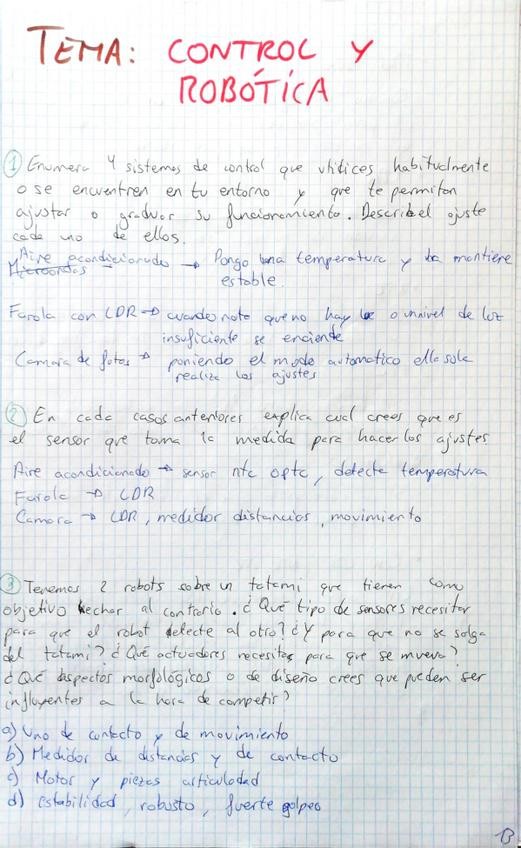 TEMA: CONTROL Y
ROBÓTICA
1 Enumera 4 sistemas de control que utilices habitualmente
o se encuentren en tu entorno y que te permitan
ajustar o graduar su funcionamiento. Describe el ajuste
cada uno de ellos.
Aire acondicionado → Pongo una temperatura y la mantiene
Microondas
estable.
Farola con LDR → cuando nota que no hay luz o un nivel de luz
insuficiente se enciende
Camara de fotos → poniendo el modo automatico ella sola
realiza los ajustes
2 En cada casos anteriores explica cual crees que es
el sensor que toma la medida para hacer los ajustes
Aire acondicionado → sensor ntc o ptc, detecta temperatura
Farola → LDR
Camara → LDR, medidor distancias, movimiento
3 Tenemos 2 robots sobre un tatami que tienen como
objetivo echar al contrario. ¿Qué tipo de sensores necesitar
para que el robot detecte al otro? ¿Y para que no se salga
del tatami? ¿Qué actuadores necesitas para que se mueva?
¿Qué aspectos morfológicos o de diseño crees que pueden ser
influyentes a la hora de competir?
a) Uno de contacto y de movimiento
b) Medidor de distancias y de contacto
c) Motor y piezas articulad
d) estabilidad, robusto, fuerte golpeo
B